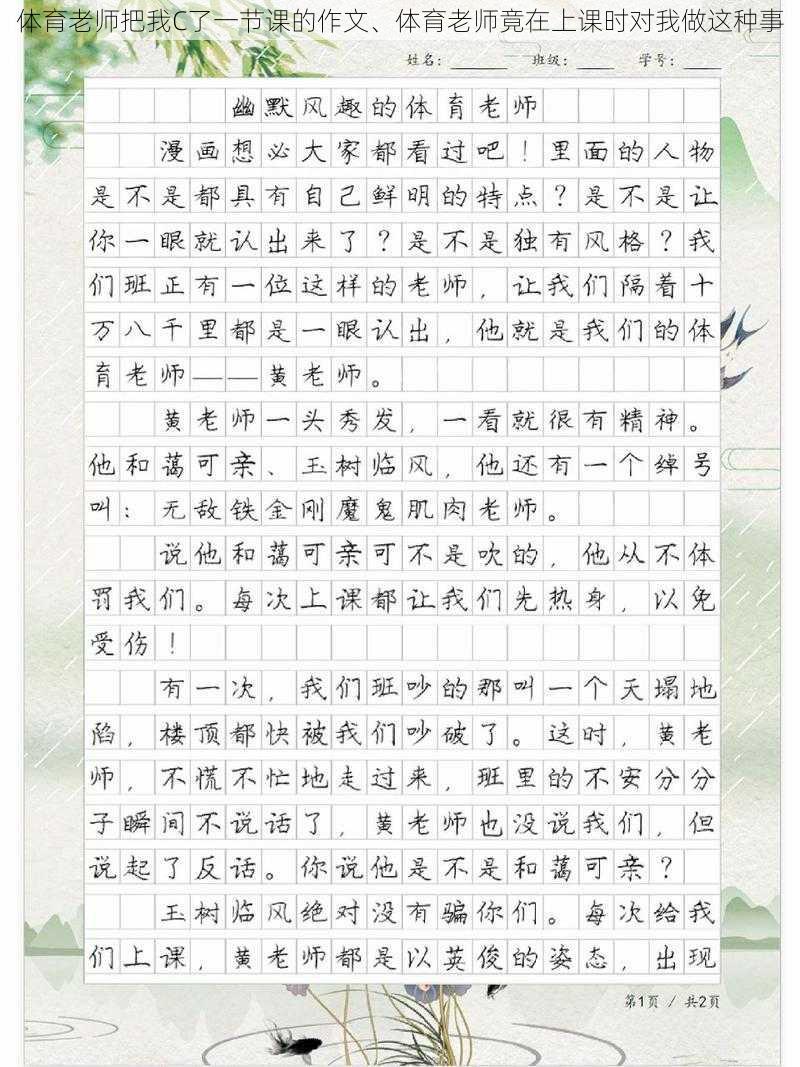 体育老师把我C了一节课的作文、体育老师竟在上课时对我做这种事
姓名：______ 班级：____ 学号：____
幽默风趣的体育老师
漫画想必大家都看过吧！里面的人物
是不是都具有自己鲜明的特点？是不是让
你一眼就认出来了？是不是独有风格？我
们班正有一位这样的老师，让我们隔着十
万八千里都是一眼认出，他就是我们的体
育老师——黄老师。
黄老师一头秀发，一看就很有精神。
他和蔼可亲、玉树临风，他还有一个绰号
叫：无敌铁金刚魔鬼肌肉老师。
说他和蔼可亲可不是吹的，他从不体
罚我们。每次上课都让我们先热身，以免
受伤！
有一次，我们班吵的那叫一个天塌地
陷，楼顶都快被我们吵破了。这时，黄老
师，不慌不忙地走过来，班里的不安分分
子瞬间不说话了，黄老师也没说我们，但
说起了反话。你说他是不是和蔼可亲？
玉树临风绝对没有骗你们。每次给我
们上课，黄老师都是以英俊的姿态，出现
第1页 / 共2页